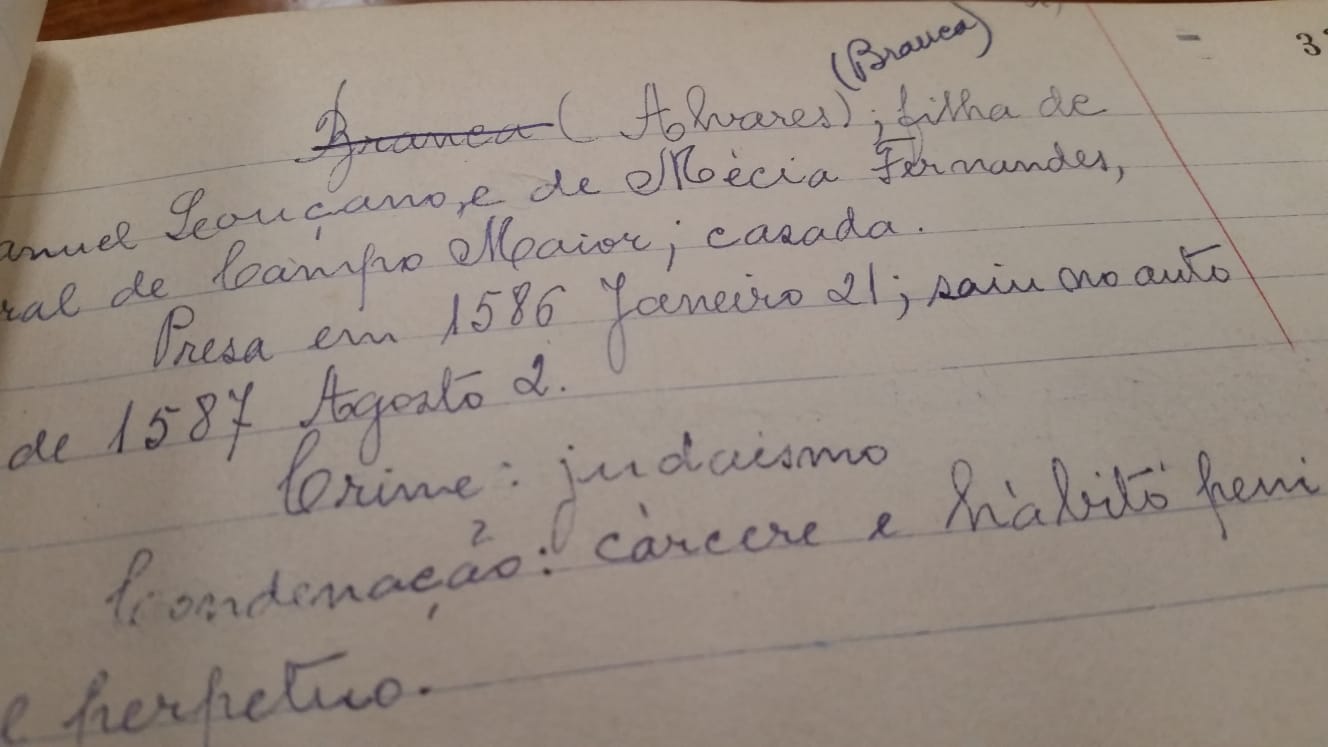 (Branca)
3
Branca (Alvares); filha de
anuel Louçano, e de Mécia Fernandes,
ral de Campo Maior; casada.
Presa em 1586 Janeiro 21; saiu no auto
de 1587 Agosto 2.
Crime: judaismo
Condenação: càrcere e hàbito peni
e perpetuo.